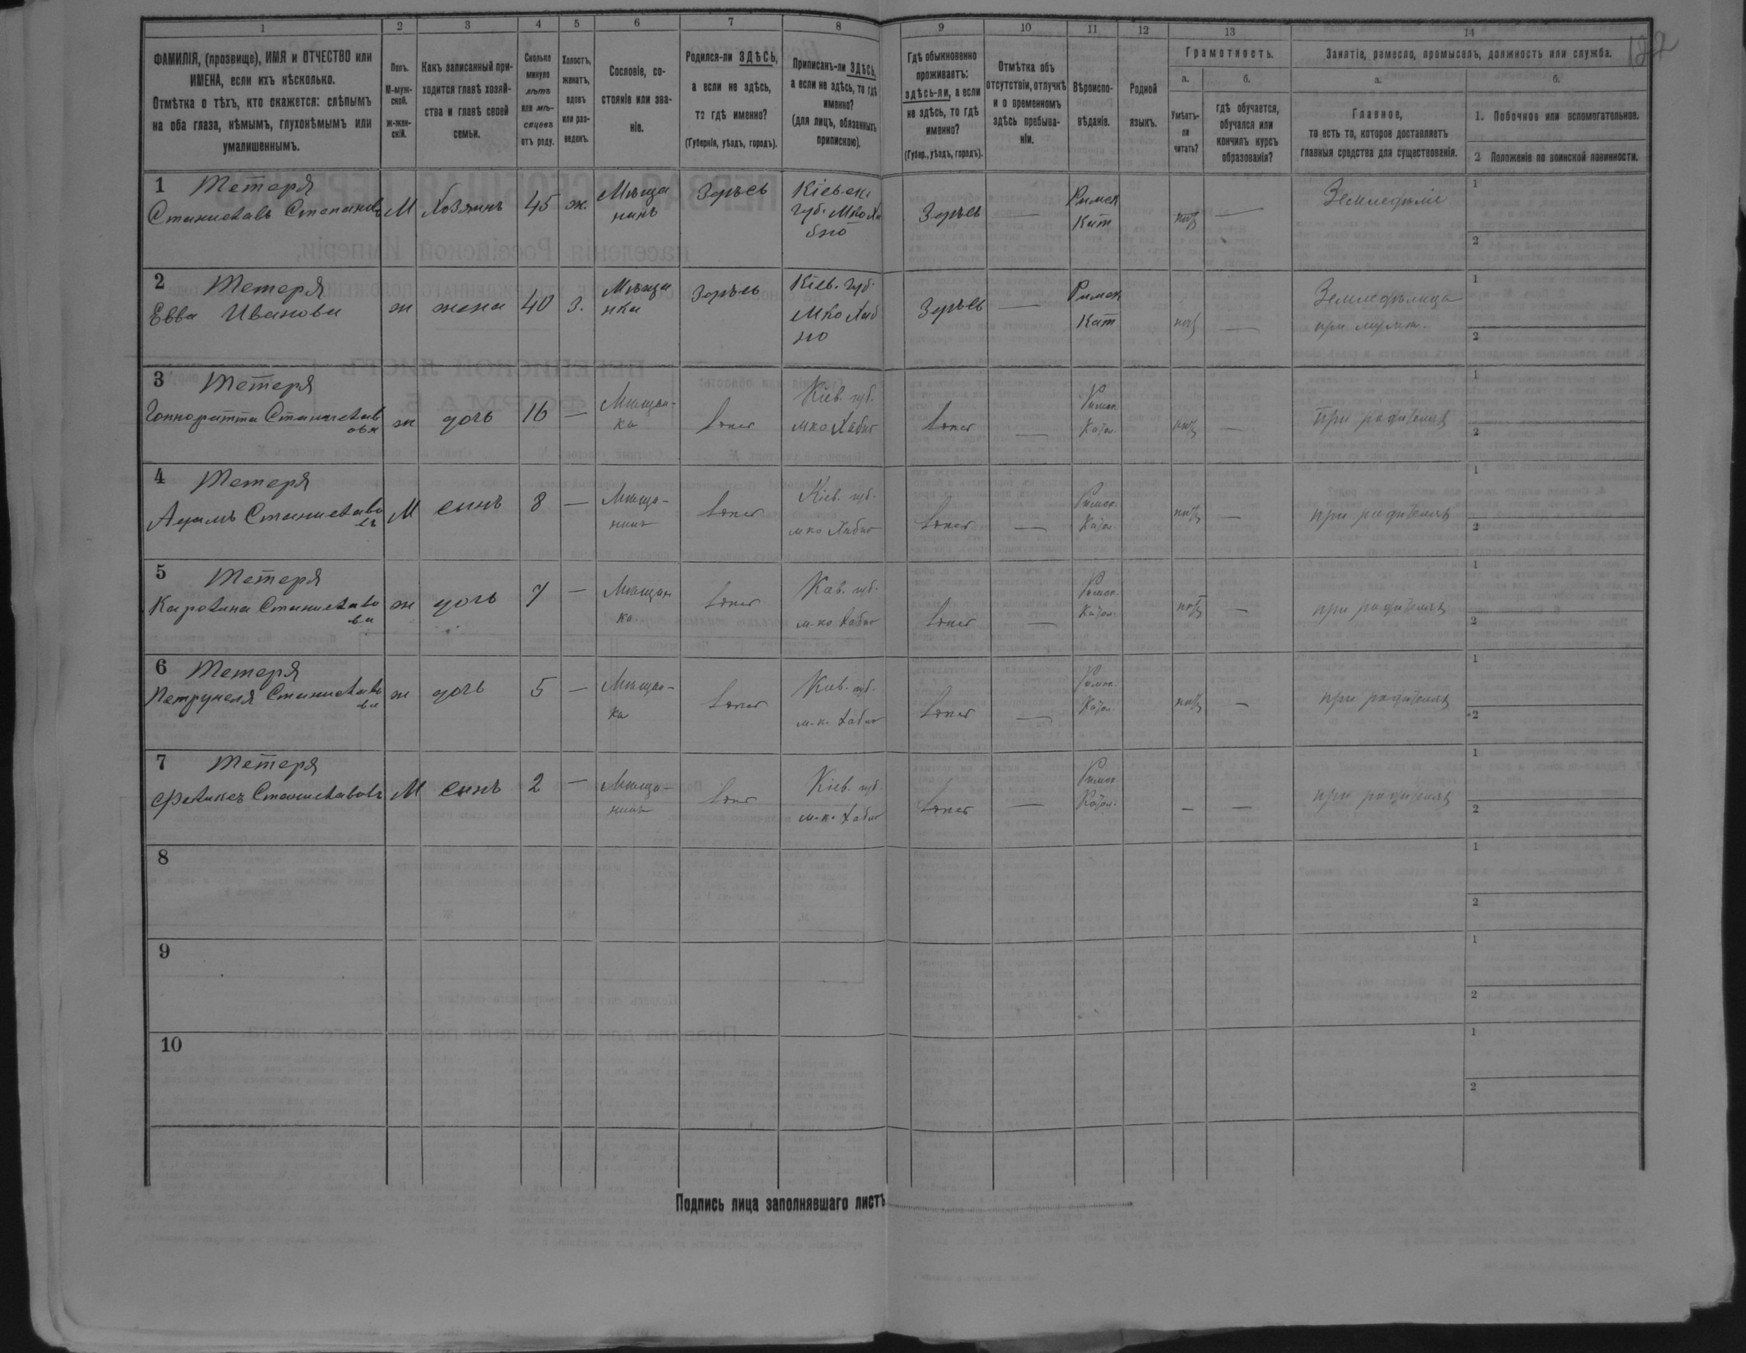 1 2 3 4 5 6 7 8 9 10 11 12 13 14
ФАМИЛІЯ, (прозвище), ИМЯ и ОТЧЕСТВО или
ИМЕНА, если ихъ нѣсколько.
Отмѣтка о тѣхъ, кто окажется: слѣпымъ
на оба глаза, нѣмымъ, глухонѣмымъ или
умалишеннымъ.
Полъ.
М-муж-
ской.
ж-жен-
скій.
Какъ записанный при-
ходится главѣ хозяй-
ства и главѣ своей
семьи.
Сколько
минуло
лѣтъ
или мѣ-
сяцевъ
отъ роду.
Холостъ,
женатъ,
вдовъ
или раз-
веденъ.
Сословіе, со-
стояніе или зва-
ніе.
Родился-ли ЗДѢСЬ,
а если не здѣсь,
то гдѣ именно?
(Губернія, уѣздъ, городъ).
Приписанъ-ли ЗДѢСЬ,
а если не здѣсь, то гдѣ
именно?
(для лицъ, обязанныхъ
припискою).
Гдѣ обыкновенно
проживаетъ:
здѣсь-ли, а если
не здѣсь, то гдѣ
именно?
(Губер., уѣздъ, городъ).
Отмѣтка объ
отсутствіи, отлучкѣ
и о временномъ
здѣсь пребыва-
ніи.
Вѣроиспо-
вѣданіе.
Родной
языкъ.
Грамотность.
а.
Умѣетъ-
ли
читать?
б.
гдѣ обучается,
обучался или
кончилъ курсъ
образованія?
Занятіе, ремесло, промыселъ, должность или служба.
а.
Главное,
то есть то, которое доставляетъ
главныя средства для существованія.
б.
1. Побочное или вспомогательное.
2 Положеніе по воинской повинности.
1 Тетеря
Станиславъ Степановъ М Хозяинъ 45 ж. Мѣща
нинъ Здѣсь Кіевск.
губ. Мко Ха
бно Здѣсь — Римск
Кат нѣтъ — Земледѣліе 1
2
2 Тетеря
Евва Иванова ж жена 40 з. Мѣща
нка Здѣсь Кіев. губ.
Мко Хаб
но Здѣсь — Римск
Кат нѣтъ — 1
2
3 Тетеря
Станиславов ж дочь 16 — Мѣщан-
ка Кіев. губ.
мко Хабно — Римск.
Катол. нѣтъ — при родителяхъ 1
2
4 Тетеря
Адамъ Станиславо
въ М сынъ 8 — Мѣща-
нинъ Кіев. губ.
мко Хабно — Римск.
Катол. нѣтъ — при родителяхъ 1
2
5 Тетеря
Каролина Станиславо
ва ж дочь 7 — Мѣщан
ка Кіев. губ.
м-ко Хабно — Римск.
Катол. нѣтъ — при родителяхъ 1
2
6 Тетеря
Петрунеля Станиславо
ва ж дочь 5 — Мѣщан-
ка Кіев. губ.
м-ко Хабно — Римск.
Катол. нѣтъ — при родителяхъ 1
2
7 Тетеря
Феликсъ Станиславовъ М сынъ 2 — Мѣща-
нинъ Кіев. губ
м-ко Хабно — Римск.
Катол. — — при родителяхъ 1
2
8 1
2
9 1
2
10 1
2
Подпись лица заполнявшаго листъ